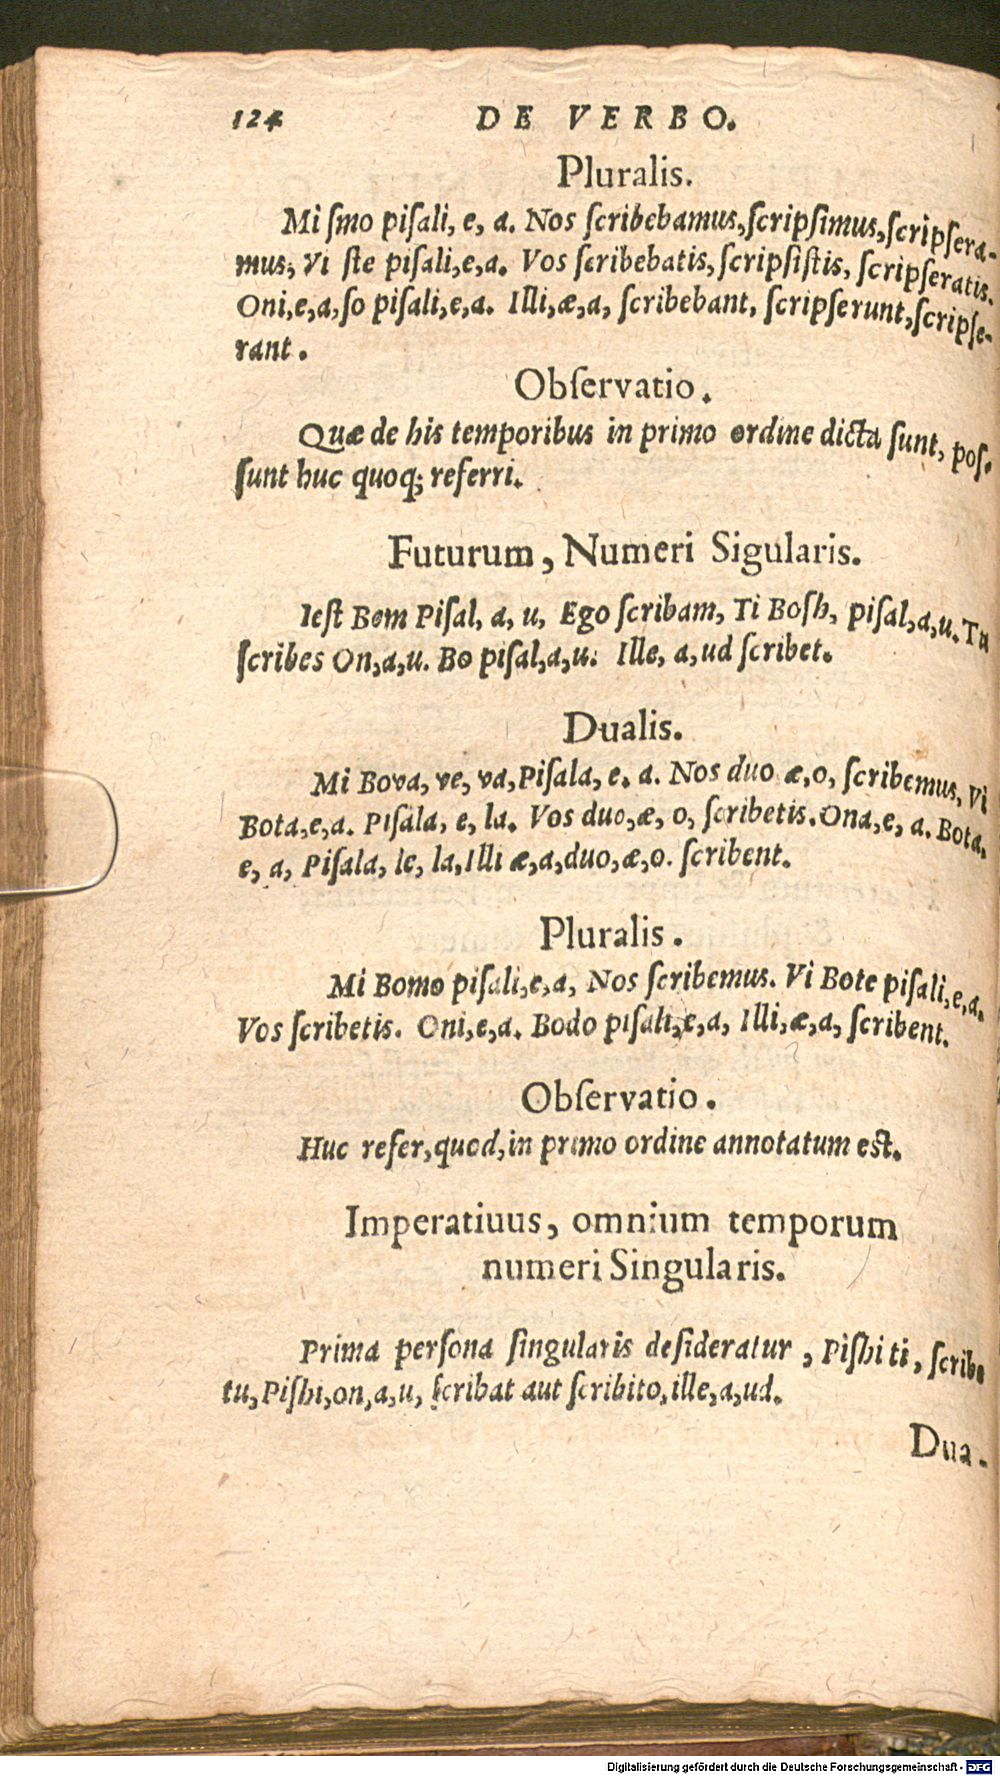 124 DE VERBO.
Pluralis.
Mi ſmo piſali, e, a. Nos ſcribebamus, ſcripſimus, ſcripſera-
mus; Vi ſte piſali,e,a. Vos ſcribebatis, ſcripſiſtis, ſcripſeratis.
Oni,e,a,ſo piſali,e,a. Illi,æ,a, ſcribebant, ſcripſerunt,ſcripſe-
rant.
Obſervatio.
Quæ de his temporibus in primo ordine dicta ſunt, poſ-
ſunt huc quoq; referri.
Futurum, Numeri Sigularis.
Ieſt Bom Piſal, a, u, Ego ſcribam, Ti Boſh, piſal,a,u. Tu
ſcribes On,a,u. Bo piſal,a,u. Ille, a,ud ſcribet.
Dualis.
Mi Bova, ve, va,Piſala, e. a. Nos duo æ,o, ſcribemus, Vi
Bota,e,a. Piſala, e, la. Vos duo,æ, o, ſcribetis. Ona,e, a. Bota,
e, a, Piſala, le, la,Illi æ,a,duo,æ,o. ſcribent.
Pluralis.
Mi Bomo piſali,e,a, Nos ſcribemus. Vi Bote piſali,e,a.
Vos ſcribetis. Oni,e,a. Bodo piſali,e,a, Illi,æ,a, ſcribent.
Obſervatio.
Huc refer,quod,in primo ordine annotatum eſt.
Imperatiuus, omnium temporum
numeri Singularis.
Prima perſona ſingularis deſideratur, Piſhi ti, ſcribe
tu, Piſhi,on,a,u, ſcribat aut ſcribito,ille,a,ud.
Dua-
Digitalisierung gefördert durch die Deutsche Forschungsgemeinschaft - DFG